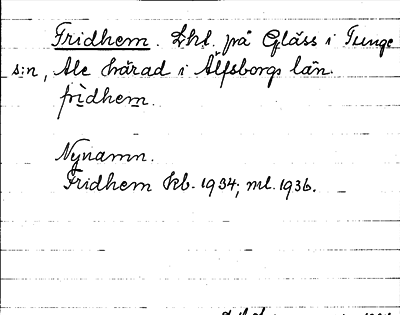 Fridhem. Lht. på Gläss i Tunge
s:n, Ale härad i Älfsborgs län.
fri̇̀dhem.
Nynamn.
Fridhem kb. 1934; ml. 1936.